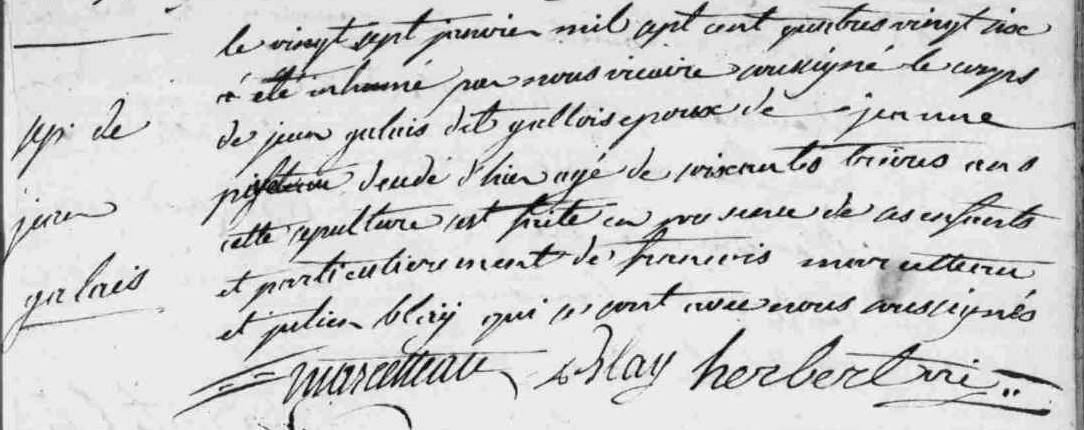 sep. de
jean
galais
le vingt sept janvier mil sept cent quatres vingt six
a été inhumé par nous vicaire soussigné le corps
de jean galais dit gallois epoux de jeanne
decédé d'hier agé de soixantes treizes ans
cette sepulture est faite en presence de ses enfants
et particulierement de francois marcetteau
et julien blay qui se sont avec nous soussignés
marcetteau Blay herbert vic